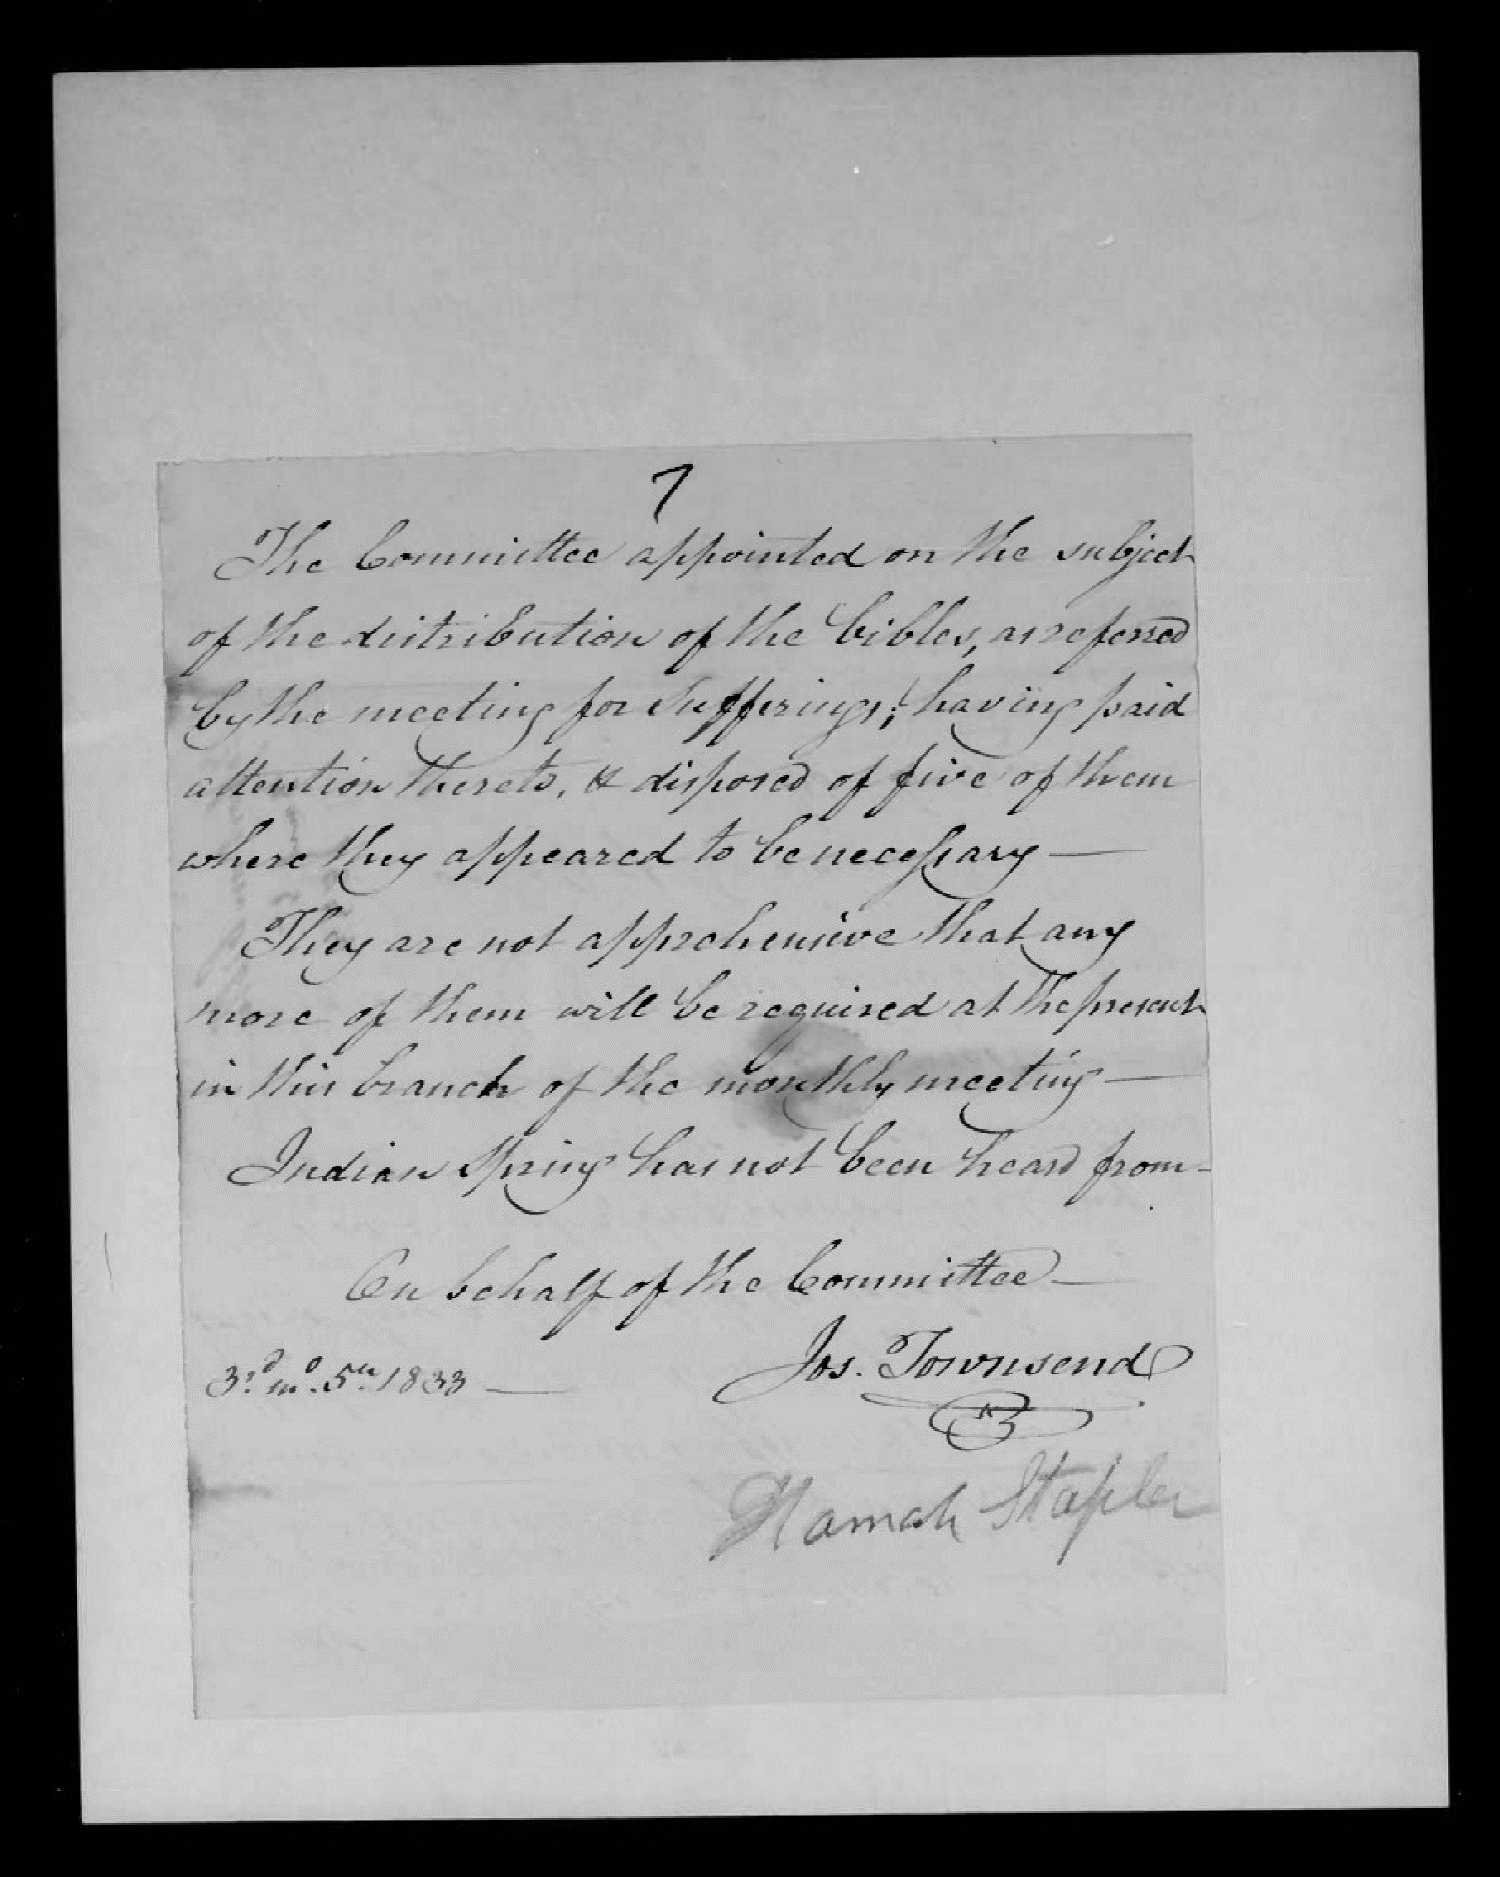 7
The Committee appointed on the subject
of the distribution of the bibles, as referred
by the meeting for Sufferings; having paid
attention thereto, & disposed of five of them
where they appeared to be necessary —
They are not apprehensive that any
more of them will be required at the present
in this branch of the monthly meeting —
Indian Spring has not been heard from —
On behalf of the Committee —
3rd mo. 5th 1833 — Jos. Townsend
Hannah Stapler